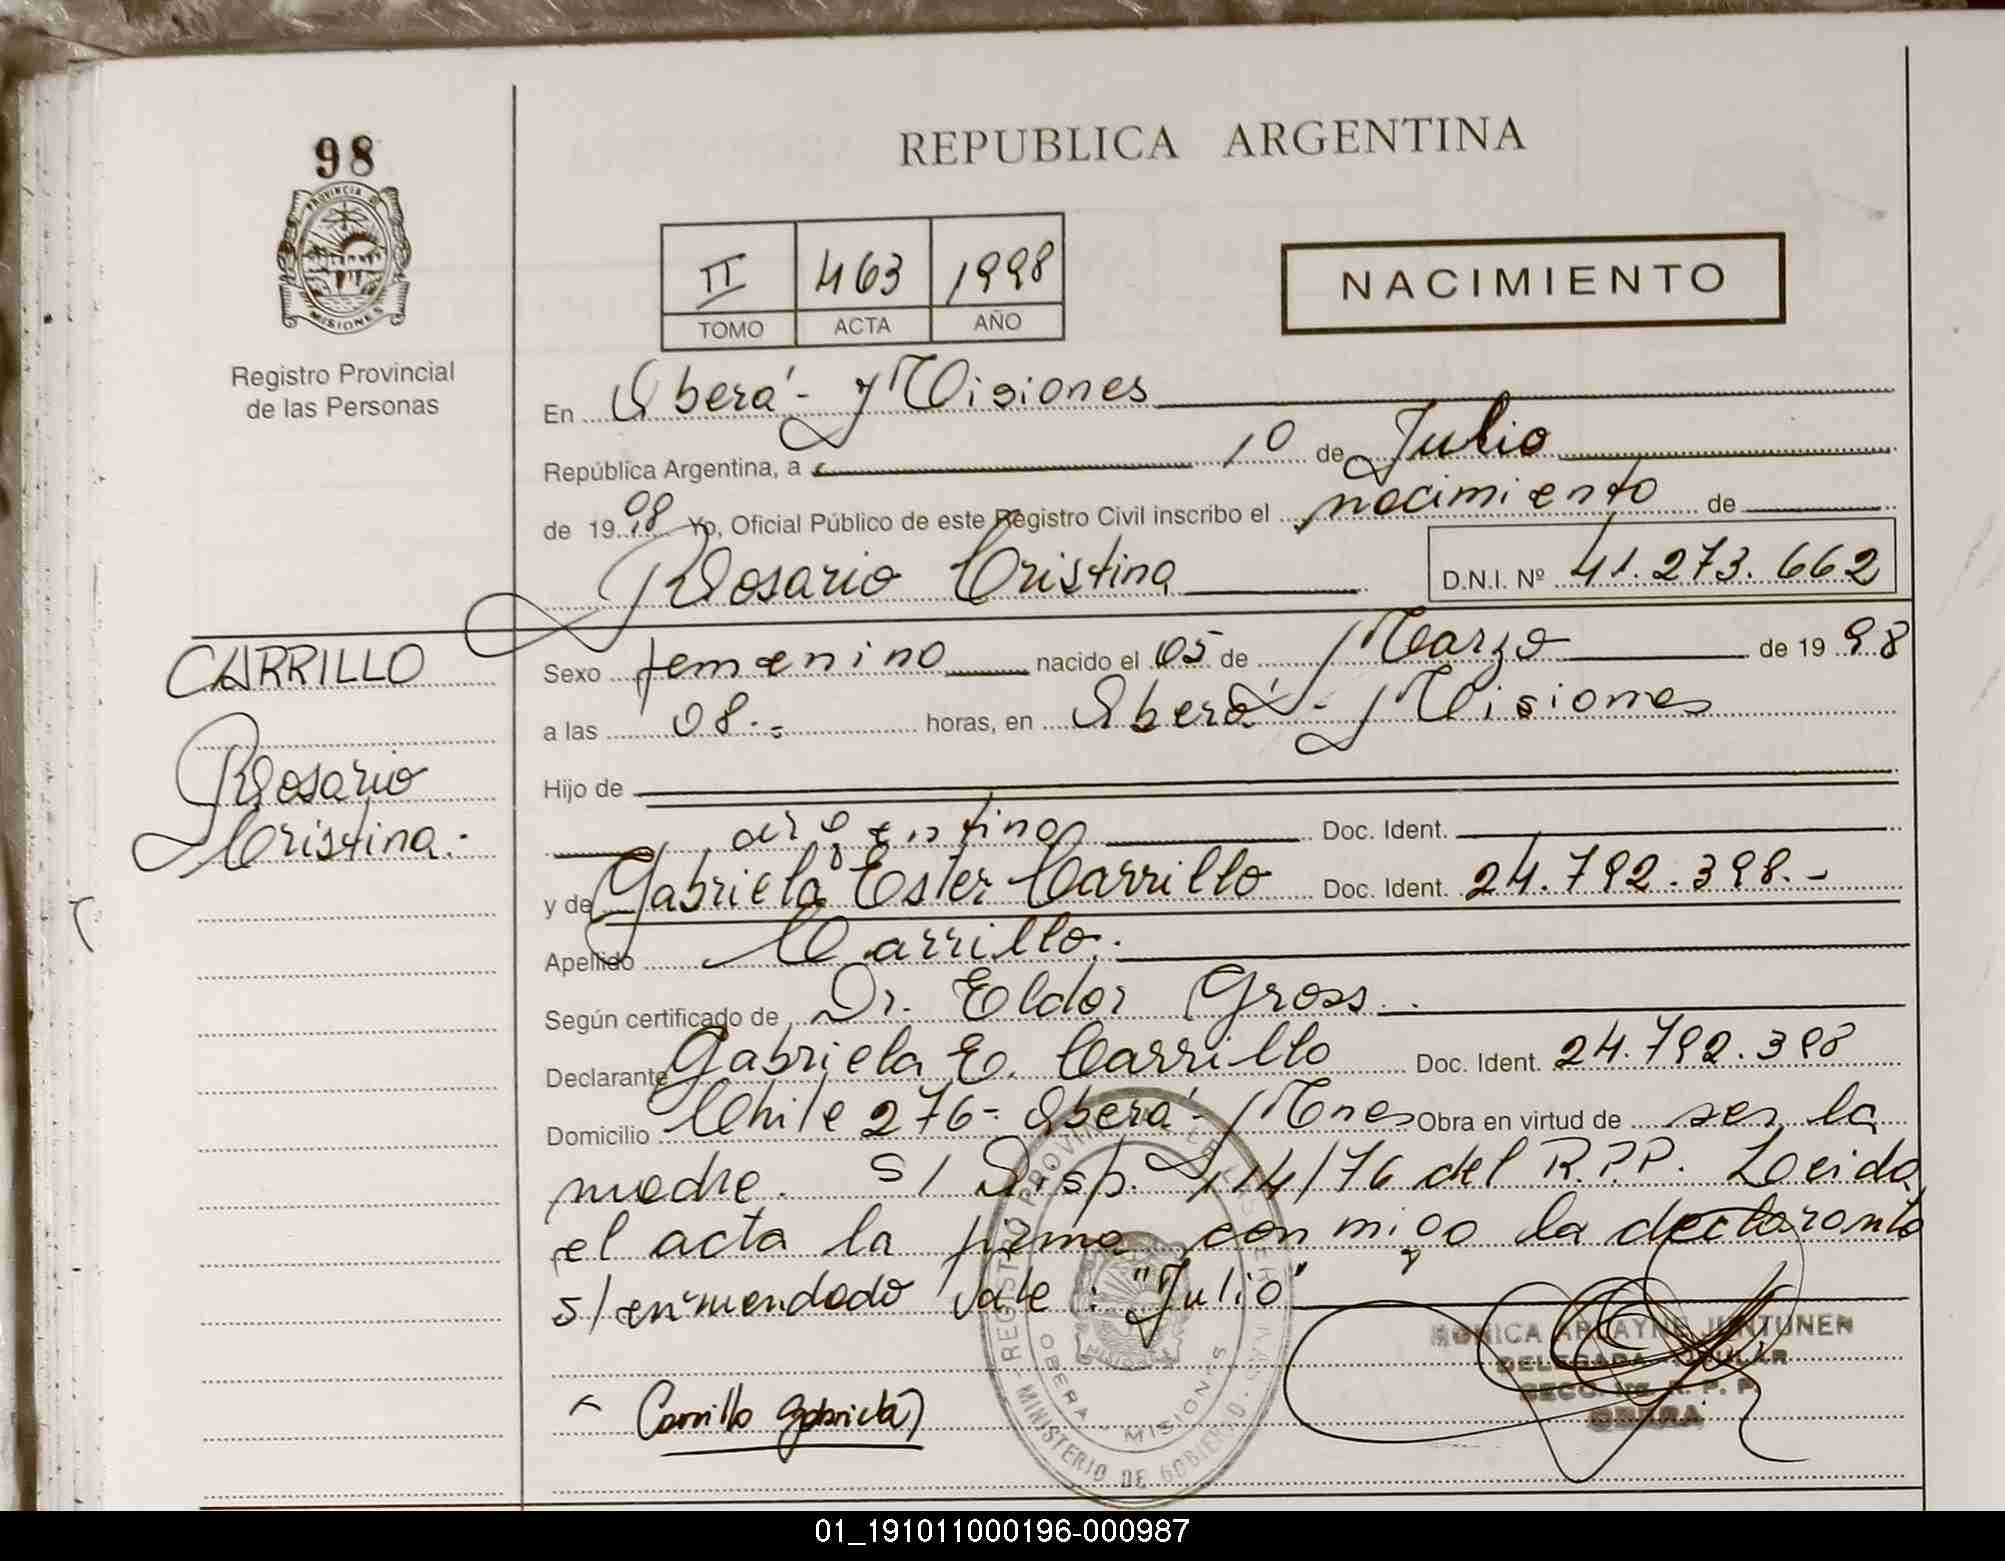 98
PROVINCIA DE
MISIONES
Registro Provincial
de las Personas
REPUBLICA ARGENTINA
II 463 1998
TOMO ACTA AÑO
NACIMIENTO
En Oberá - Misiones
República Argentina, a 10 de Julio
de 1998 Yo, Oficial Público de este Registro Civil inscribo el nacimiento de
Rosario Cristina D.N.I. Nº 41.273.662
CARRILLO
Rosario
Cristina.-
Sexo femenino nacido el 05 de Marzo de 1998
a las 08.- horas, en Oberá - Misiones
Hijo de
argentina Doc. Ident.
y de Gabriela Ester Carrillo Doc. Ident. 24.792.398.-
Apellido Carrillo.
Según certificado de Dr. Eldor Gross.
Declarante Gabriela E. Carrillo Doc. Ident. 24.792.398
Domicilio Chile 276 - Oberá - Mnes Obra en virtud de ser la
madre. S/ Disp. 114/76 del R.P.P. Leida
el acta la firma conmigo la declarante
s/enmendado Vale: "Julio"
Carrillo Gabriela
REGISTRO PROVINCIAL DE LAS PERSONAS
MINISTERIO DE GOBIERNO
OBERA MISIONES
MONICA JUNTUNEN
DELEGADA TITULAR
R. P. P.
OBERA
01_191011000196-000987